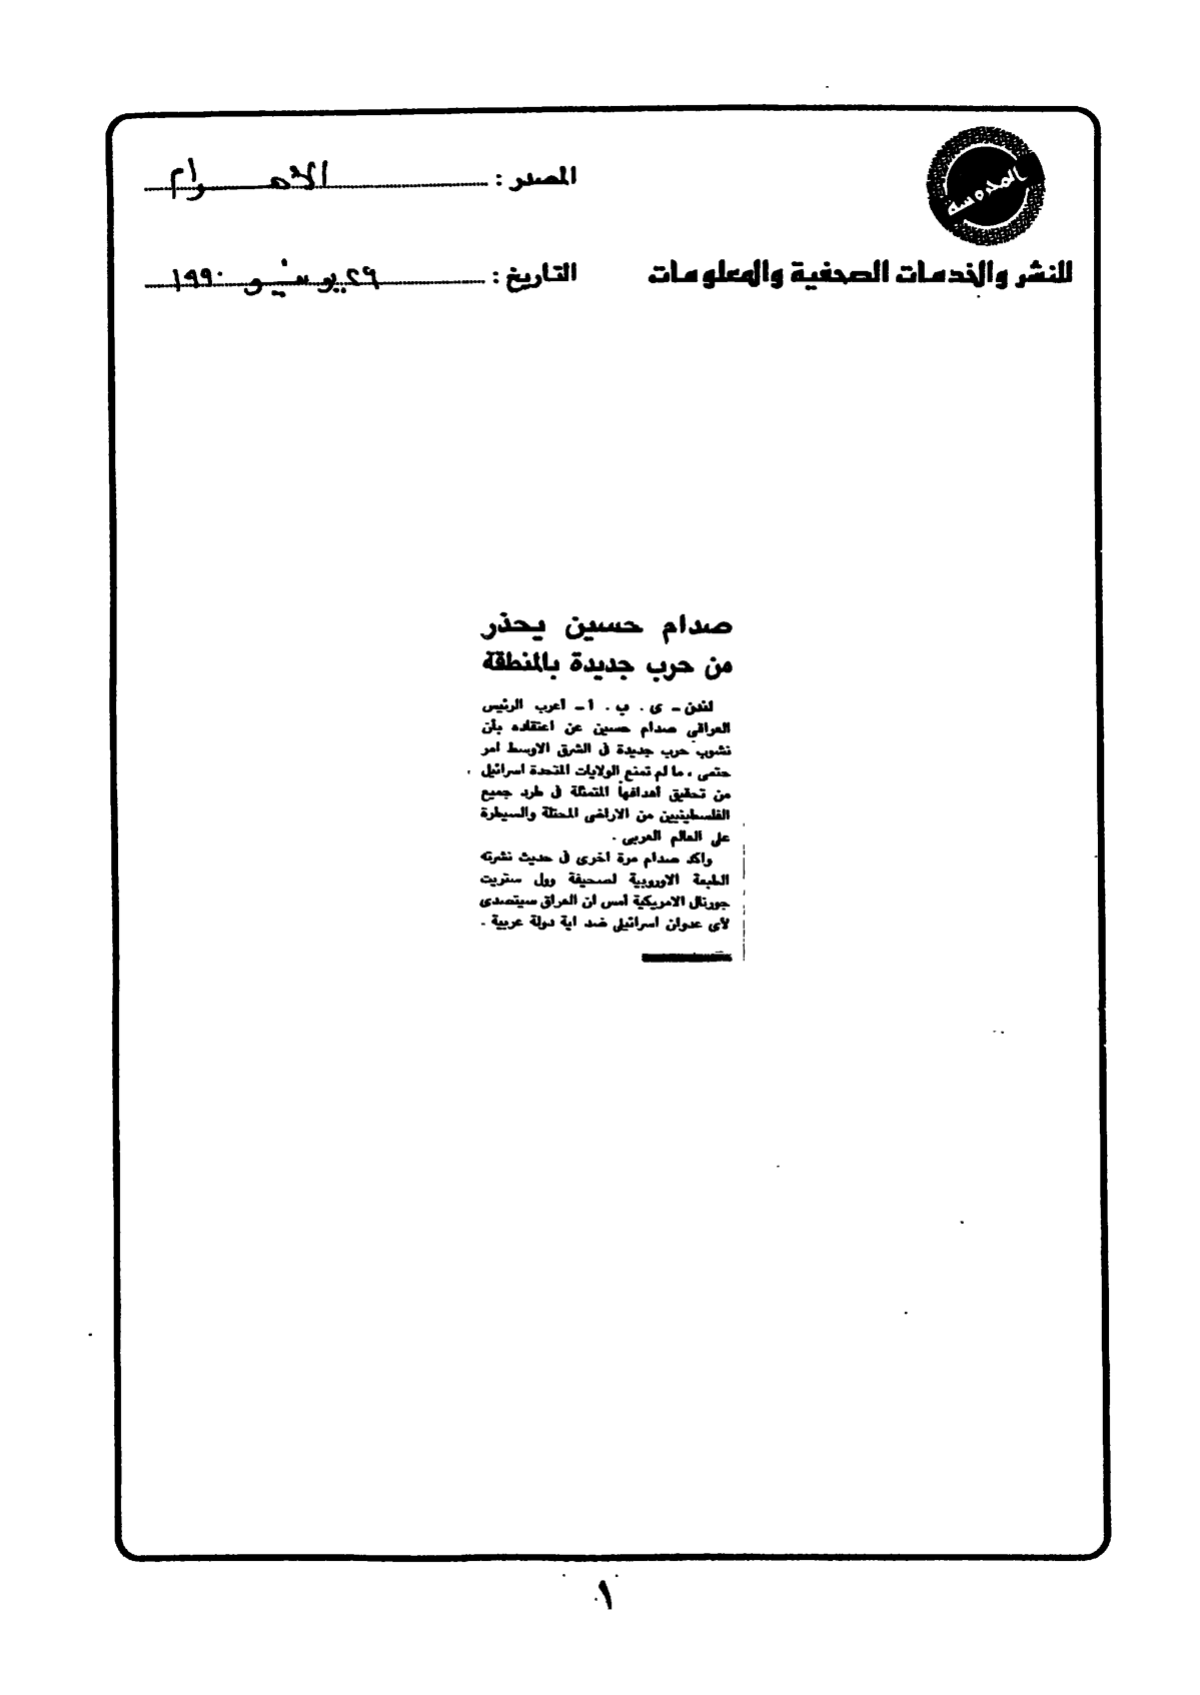 المحروسة
المصدر : الأهرام
للنشر والخدمات الصحفية والمعلومات
التاريخ : ٢٩ يونيو ١٩٩٠
صدام حسين يحذر
من حرب جديدة بالمنطقة
لندن ـ ى . ب . ا ـ اعرب الرئيس
العراقى صدام حسين عن اعتقاده بأن
نشوب حرب جديدة فى الشرق الاوسط امر
حتمى ، ما لم تمنع الولايات المتحدة اسرائيل
من تحقيق أهدافها المتمثلة فى طرد جميع
الفلسطينيين من الاراضى المحتلة والسيطرة
على العالم العربى .
واكد صدام مرة اخرى فى حديث نشرته
الطبعة الاوروبية لصحيفة وول ستريت
جورنال الامريكية أمس ان العراق سيتصدى
لأى عدوان اسرائيلى ضد اية دولة عربية .
١